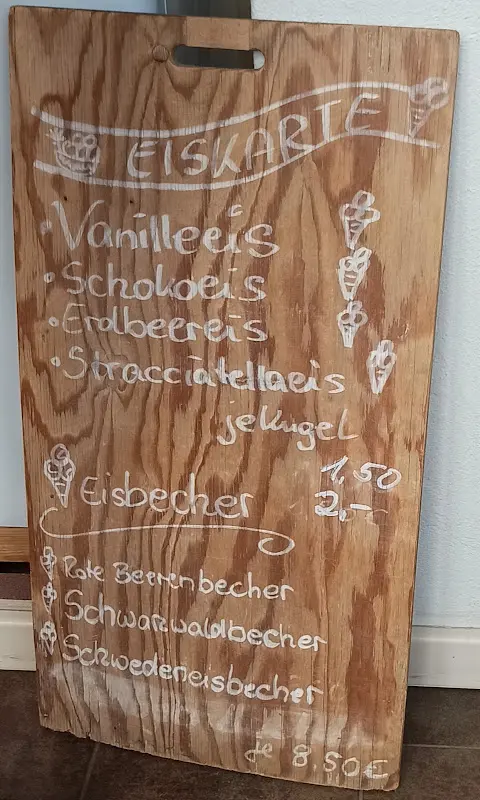 EISKARTE
• Vanilleeis
• Schokoeis
• Erdbeereis
• Stracciatellaeis
je Kugel
1,50
2,-
Eisbecher
Rote Beerenbecher
Schwarzwaldbecher
Schwedeneisbecher
je 8,50€